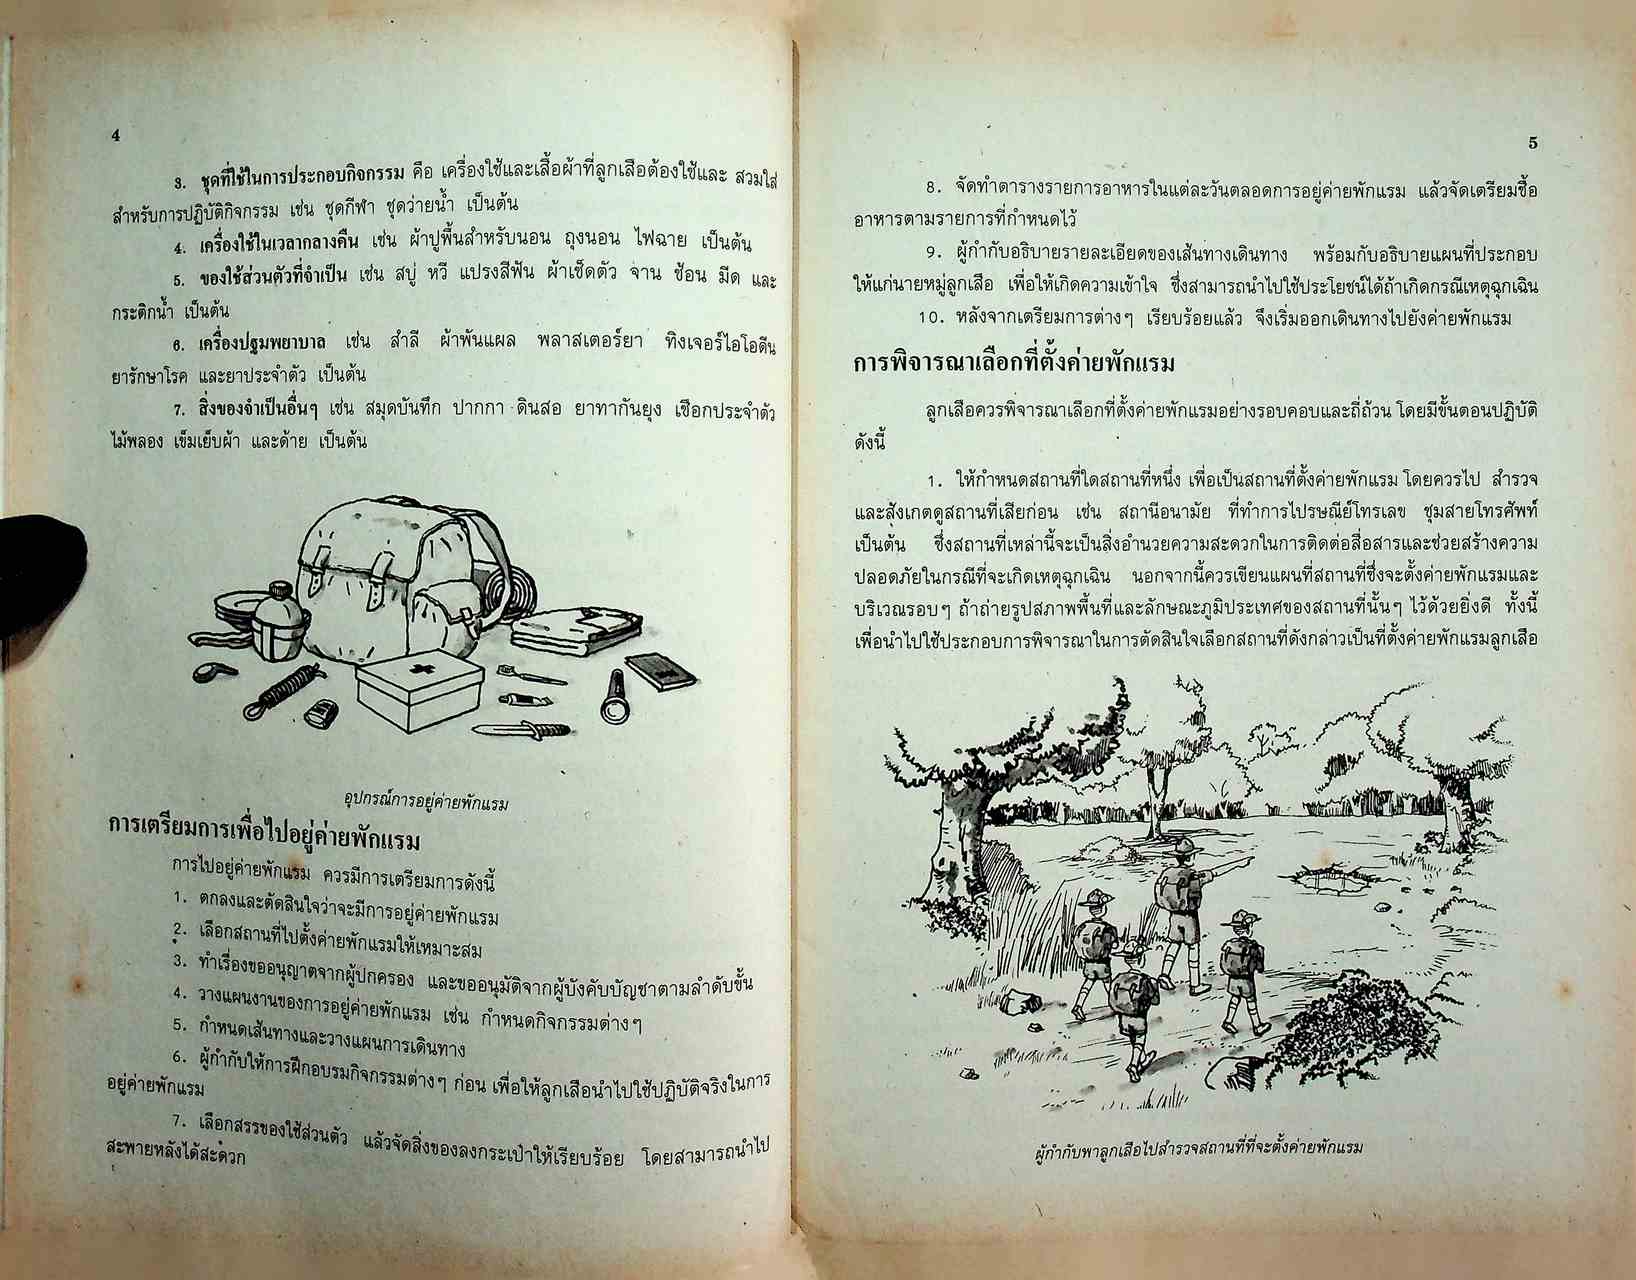 4
3. ชุดที่ใช้ในการประกอบกิจกรรม คือ เครื่องใช้และเสื้อผ้าที่ลูกเสือต้องใช้และ สวมใส่
สำหรับการปฏิบัติกิจกรรม เช่น ชุดกีฬา ชุดว่ายน้ำ เป็นต้น
4. เครื่องใช้ในเวลากลางคืน เช่น ผ้าปูพื้นสำหรับนอน ถุงนอน ไฟฉาย เป็นต้น
5. ของใช้ส่วนตัวที่จำเป็น เช่น สบู่ หวี แปรงสีฟัน ผ้าเช็ดตัว จาน ช้อน มีด และ
กระติกน้ำ เป็นต้น
6. เครื่องปฐมพยาบาล เช่น สำลี ผ้าพันแผล พลาสเตอร์ยา ทิงเจอร์ไอโอดีน
ยารักษาโรค และยาประจำตัว เป็นต้น
7. สิ่งของจำเป็นอื่นๆ เช่น สมุดบันทึก ปากกา ดินสอ ยาทากันยุง เชือกประจำตัว
ไม้พลอง เข็มเย็บผ้า และด้าย เป็นต้น
อุปกรณ์การอยู่ค่ายพักแรม
การเตรียมการเพื่อไปอยู่ค่ายพักแรม
การไปอยู่ค่ายพักแรม ควรมีการเตรียมการดังนี้
1. ตกลงและตัดสินใจว่าจะมีการอยู่ค่ายพักแรม
2. เลือกสถานที่ไปตั้งค่ายพักแรมให้เหมาะสม
3. ทำเรื่องขออนุญาตจากผู้ปกครอง และขออนุมัติจากผู้บังคับบัญชาตามลำดับขั้น
4. วางแผนงานของการอยู่ค่ายพักแรม เช่น กำหนดกิจกรรมต่างๆ
5. กำหนดเส้นทางและวางแผนการเดินทาง
6. ผู้กำกับให้การฝึกอบรมกิจกรรมต่างๆ ก่อน เพื่อให้ลูกเสือนำไปใช้ปฏิบัติจริงในการ
อยู่ค่ายพักแรม
7. เลือกสรรของใช้ส่วนตัว แล้วจัดสิ่งของลงกระเป๋าให้เรียบร้อย โดยสามารถนำไป
สะพายหลังได้สะดวก
5
8. จัดทำตารางรายการอาหารในแต่ละวันตลอดการอยู่ค่ายพักแรม แล้วจัดเตรียมซื้อ
อาหารตามรายการที่กำหนดไว้
9. ผู้กำกับอธิบายรายละเอียดของเส้นทางเดินทาง พร้อมกับอธิบายแผนที่ประกอบ
ให้แก่นายหมู่ลูกเสือ เพื่อให้เกิดความเข้าใจ ซึ่งสามารถนำไปใช้ประโยชน์ได้ถ้าเกิดกรณีเหตุฉุกเฉิน
10. หลังจากเตรียมการต่างๆ เรียบร้อยแล้ว จึงเริ่มออกเดินทางไปยังค่ายพักแรม
การพิจารณาเลือกที่ตั้งค่ายพักแรม
ลูกเสือควรพิจารณาเลือกที่ตั้งค่ายพักแรมอย่างรอบคอบและถี่ถ้วน โดยมีขั้นตอนปฏิบัติ
ดังนี้
1. ให้กำหนดสถานที่ใดสถานที่หนึ่ง เพื่อเป็นสถานที่ตั้งค่ายพักแรม โดยควรไป สำรวจ
และสังเกตดูสถานที่เสียก่อน เช่น สถานีอนามัย ที่ทำการไปรษณีย์โทรเลข ชุมสายโทรศัพท์
เป็นต้น ซึ่งสถานที่เหล่านี้จะเป็นสิ่งอำนวยความสะดวกในการติดต่อสื่อสารและช่วยสร้างความ
ปลอดภัยในกรณีที่จะเกิดเหตุฉุกเฉิน นอกจากนี้ควรเขียนแผนที่สถานที่ซึ่งจะตั้งค่ายพักแรมและ
บริเวณรอบๆ ถ้าถ่ายรูปสภาพพื้นที่และลักษณะภูมิประเทศของสถานที่นั้นๆ ไว้ด้วยยิ่งดี ทั้งนี้
เพื่อนำไปใช้ประกอบการพิจารณาในการตัดสินใจเลือกสถานที่ดังกล่าวเป็นที่ตั้งค่ายพักแรมลูกเสือ
ผู้กำกับพาลูกเสือไปสำรวจสถานที่ที่จะตั้งค่ายพักแรม